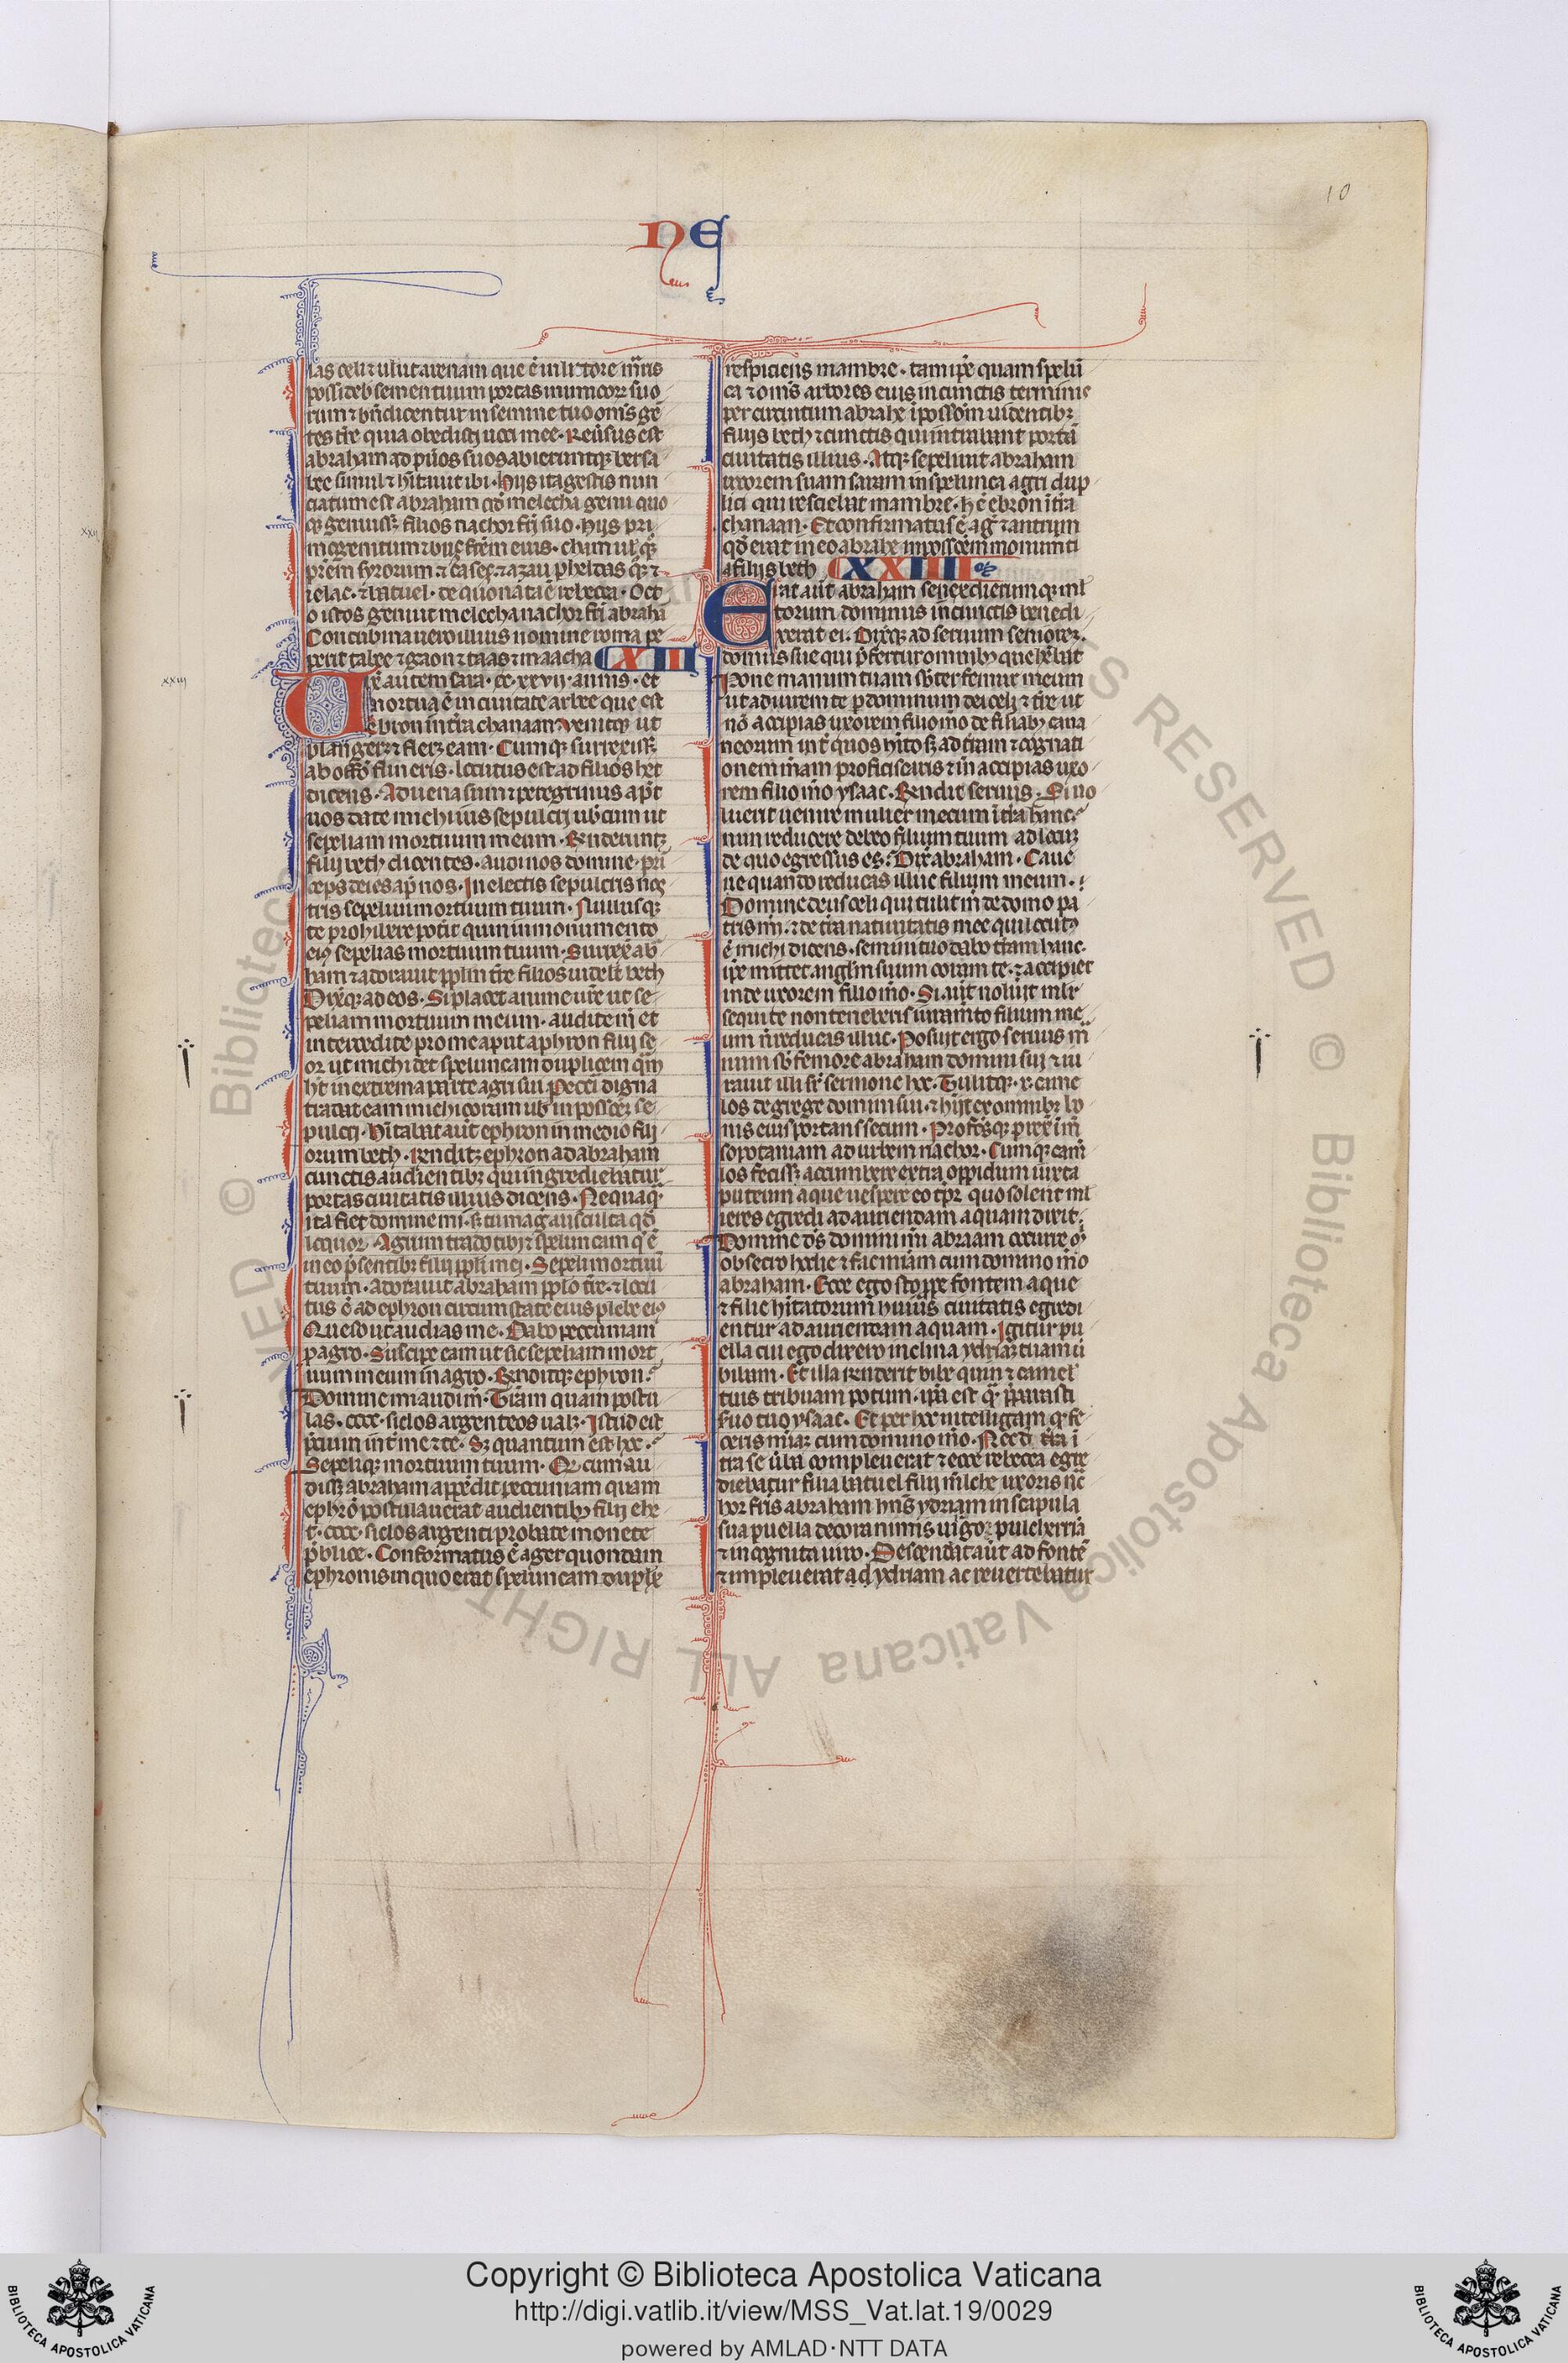 10
NE
las celi ⁊ uelut arenam que ē in littore mr̄is
possideb semen tuum portas inimicorꝝ suo
rum ⁊ bn̄dicentur in semine tuo om̄s gē
tes tr̄e quia obedisti uoci mee. Reūsus est
abraham ad pūos suos abieruntqꝫ bersa
bee simul ⁊ hītauit ibi. Hijs ita gestis nun
ciatum est abraham qđ melcha genu quo
qꝫ genuissꝫ filios nachor frī suo. hijs pri
xxiij
Concubina uero illius nomine roma pe
perit tabee ⁊ gaon ⁊ taas ⁊ maacha XXIII
autem sara. ce. xxvij. annis. et
mortua ē in ciuitate arbee que est
ebron in tr̄a chanaan venitqꝫ ut
plangerꝫ ⁊ flerꝫ eam. Cumqꝫ surrexissꝫ
ab offō funeris. locutus est ad filios het
dicens. Aduena sum ⁊ peregrinus apt̄
uos date michi ius sepulcri ut
sepeliam mortuum meum. Rn̄derunt
filij heth dicentes. audi nos domine. pri
ceps dei es ap̄ nos. In electis sepulcris nos
tris sepeli mortuum tuum. Nullusqꝫ
te prohibere potit quin in monumento
eiꝰ sepelias mortuum tuum. Surrexē ab
ham ⁊ adorauit pplm tr̄e filios uidelt heth
Dixitqꝫ ad eos. Si placet anime ur̄e ut se
peliam mortuum meum. audite m̄ et
intercedite pro me aput aphron filij se
or ut michi det speluncam duplicem qm̄
ht in extrema parte agri sui Peccī digna
tradat eam michi coram uobis in poss
pulcri. Hītabat aūt ephron in medio fili
orum heth. Rn̄ditꝫ ephron ad abraham
cunctis audientibꝫ qui ingrediebatur
portas ciuitatis illius dicens. Nequaqꝫ
ita fiet domine mi. sꝫ tu mag ausculta qđ
loquor. Agrum trado tibi ⁊ speluncam q̄ ē
in eo p̄sentibꝫ filijs ppli mei. Sepeli mortuū
tuum. Adorauit abraham pplo tr̄e. ⁊ locu
tus ē ad ephron circumstate eius plebe eiꝰ
Queso ut audias me. Dabo peccuniam
p agro. Suscipe eam ut sic sepeliam mort
uum meum in agro. Rn̄ditqꝫ ephron.
Domine mi audi m̄. Tr̄am quam postu
las. cccc. siclos argenteos ualꝫ. Istud est
p̄cium int̄ me ⁊ te. Sꝫ quantum est hoc.
Sepeliqꝫ mortuum tuum. Qđ cum au
dissꝫ abraham appēdit peccuniam quam
ephrō postulauerat audientibꝫ filij ehe
t. cccc. siclos argenti probate monete
p̄blice. Confirmatus ē ager quondam
ephronis in quo erat speluncam duplꝫ
respiciens mambre. tam ip̄e quam spelū
ca ⁊ om̄s arbores eius in cunctis terminis
per circuitum abrahe ī possoī m uidentibꝫ
filijs heth ⁊ cunctis qui intrabant portā
ciuitatis illius. Atqꝫ sepeliuit abraham
uxorem suam saram in spelunca agri dup
lici qui resciebat mambre. h ē ebron ī tr̄a
chanaan. Et confirmatus ē aḡ ⁊ antrum
qđ erat in eo abrahe in possoēm monumti
a filijs heth XXIIII
Erat aūt abraham senex dierumqꝫ ml
torum dominus in cunctis benedi
xerat ei. Dixitqꝫ ad seruum seniorē
domus sue qui p̄ferctur omnibꝫ que hēbat
Pone manum tuam sb̄ter femur meum
ut adiurem te p dominum dei celi ⁊ tr̄e ut
nō accipias uxorem filio m̄o de filiabꝫ cana
neorum int̄ quos hīto sꝫ ad tr̄am ⁊ cognati
onem m̄am proficiscaris ⁊ in accipias uxo
rem filio m̄o ysaac. Rn̄dit seruus. Si no
luerit uenire mulier mecum ī tr̄a hanc
nun reducere debeo filium tuum ad locū
de quo egressus es. Dix abraham. Caue
ne quando reducas illuc filium meum.
Domine deus celi qui tulit m̄ de domo pa
tris m̄. ⁊ de tr̄a natiuitatis mee qui locutꝰ
ē michi dicens. semini tuo dabo tr̄am hanc.
ip̄e mittet anglm suum coram te. ⁊ accipiet
inde uxorem filio m̄o. Si aūt noluit mlr
sequi te non teneberis iuram̄to filium me
um n̄ reducas illuc. Posuit ergo seruus m̄
num sb̄ femore abraham domini sui ⁊ iu
rauit illi sr̄ sermone hoc. Tulitqꝫ. x. came
los de grege domini sui. ⁊ hijt ex omnibꝫ bo
nis eius portans secum. Profc̄sqꝫ prex̄ īm̄
sopotaniam ad urbem nachor. Cumqꝫ cam̄
los fecissꝫ accumbere extra oppidum iuxta
puteum aque uespere eo tp̄r quo solent ml
ieres egredi ad auriendam aquam dixit.
Domine ds̄ domini m̄i abraam occurre o
obsecro hodie ⁊ fac miām cum domino m̄o
abraham. Ecce ego sto ppe fontem aque
⁊ filie hītatorum huius ciuitatis egredi
entur ad auriendam aquam. Igitur pu
ella cui ego dixero inclina ydriaꝫ tuam ū
bibam. Et illa rn̄derit bibe quin ⁊ camel
tuis tribuam potum. ip̄a est q̄. p̄parasti
suo tuo ysaac. Et per hoc intelligam qꝫ fe
ceris miāꝫ cum domino m̄o. Necd tr̄a i
tra se uba compleuerat ⁊ ecce rebecca egre
diebatur filia batuel filij mlche uxoris na
hor fris abraham hn̄s ydriam in scapula
sua puella decora nimis uigo⁊ pulcherria
⁊ incognita uiro. Descenderat aūt ad fontē
⁊ impleuerat ad ydriam ac reuertebatur
© Biblioteca Apostolica Vaticana ALL RIGHTS RESERVED
Copyright © Biblioteca Apostolica Vaticana
http://digi.vatlib.it/view/MSS_Vat.lat.19/0029
powered by AMLAD·NTT DATA
BIBLIOTECA APOSTOLICA VATICANA
BIBLIOTECA APOSTOLICA VATICANA